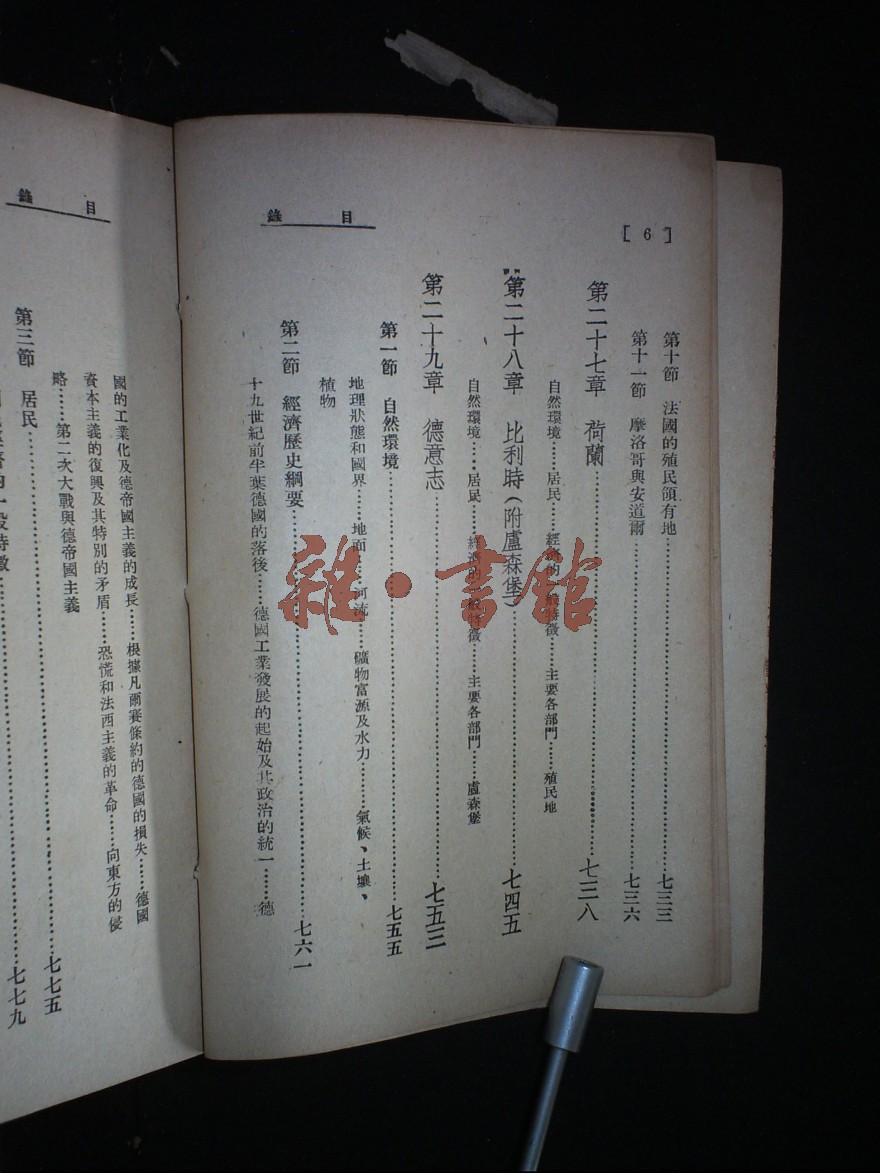 [6]
目錄
第十節 法國的殖民領有地……七三三
第十一節 摩洛哥與安道爾……七三六
第二十七章 荷蘭……七三八
自然環境……居民……經濟的一般特徵……主要各部門……殖民地
第二十八章 比利時(附盧森堡)……七四五
自然環境……居民……經濟的一般特徵……主要各部門……盧森堡
第二十九章 德意志……七五三
第一節 自然環境……七五五
地理狀態和國界……地面……河流……礦物富源及水力……氣候、土壤、
植物
第二節 經濟歷史綱要……七六一
十九世紀前半葉德國的落後……德國工業發展的起始及其政治的統一……德
目錄
國的工業化及德帝國主義的成長……根據凡爾賽條約的德國的損失……德國
資本主義的復興及其特別的矛盾……恐慌和法西主義的革命……向東方的侵
略……第二次大戰與德帝國主義
第三節 居民……七七五
的一般特徵……七七九
雜·書館